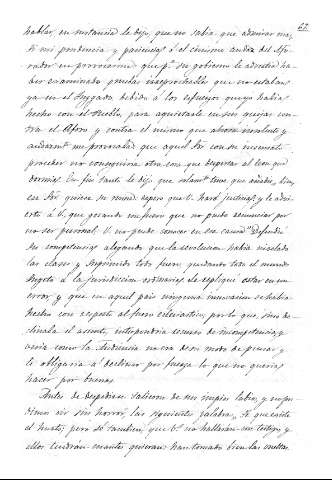 62.
hablar, en sustancia le dije, que no sabia que admirar mas,
si mi prudencia y paciencia ó el cinismo audaz del Afo-
rador en persuadirme que pr. su gobierno le admitia ha-
ber examinado pruebas irreprochables que no estaban
ya en el Juzgado debido á los esfuerzos que yo habia
hecho con el Pueblo, para aquietarle en sus quejas con-
tra el Aforo y contra el mismo que ahora insolente y
audaz me provocaba que aquel Sor con su inconsulto
proceder no conseguiria otra cosa que despertar el leon que
dormia. En fin tanto le dije que solamte. tuvo que añadir, bien,
ese Sor quiera su mismo espero que U. hará justicia; y le advi-
erto á U. que gozando un fuero que no puedo renunciar por
no ser personal U. no puede conocer en esta causa. Defendió
su competencia alegando que la revolucion habia nivelado
las clases y suprimido todo fuero quedando todo el mundo
sugeto á la jurisdiccion ordinaria. Le repliqué estar en un
error y que en aquel pais ninguna innovacion se habia
hecho con respecto al fuero eclesiastico, por lo que, sino de-
clinaba el asunto, interpondria recurso de incompetencia, y
veria como la Audiencia no era de su modo de pensar y
le obligaria á declinar por fuerza lo que no queria
hacer por buenas.
Antes de despedirme salieron de sus impios labios, y no pu-
dimos oir sin horror, las siguientes palabras, Sé que existe
el hurto; pero sé tambien que U. no hallarán un testigo, y
ellos tendrán cuantos quieran; han tomado bien las medidas.